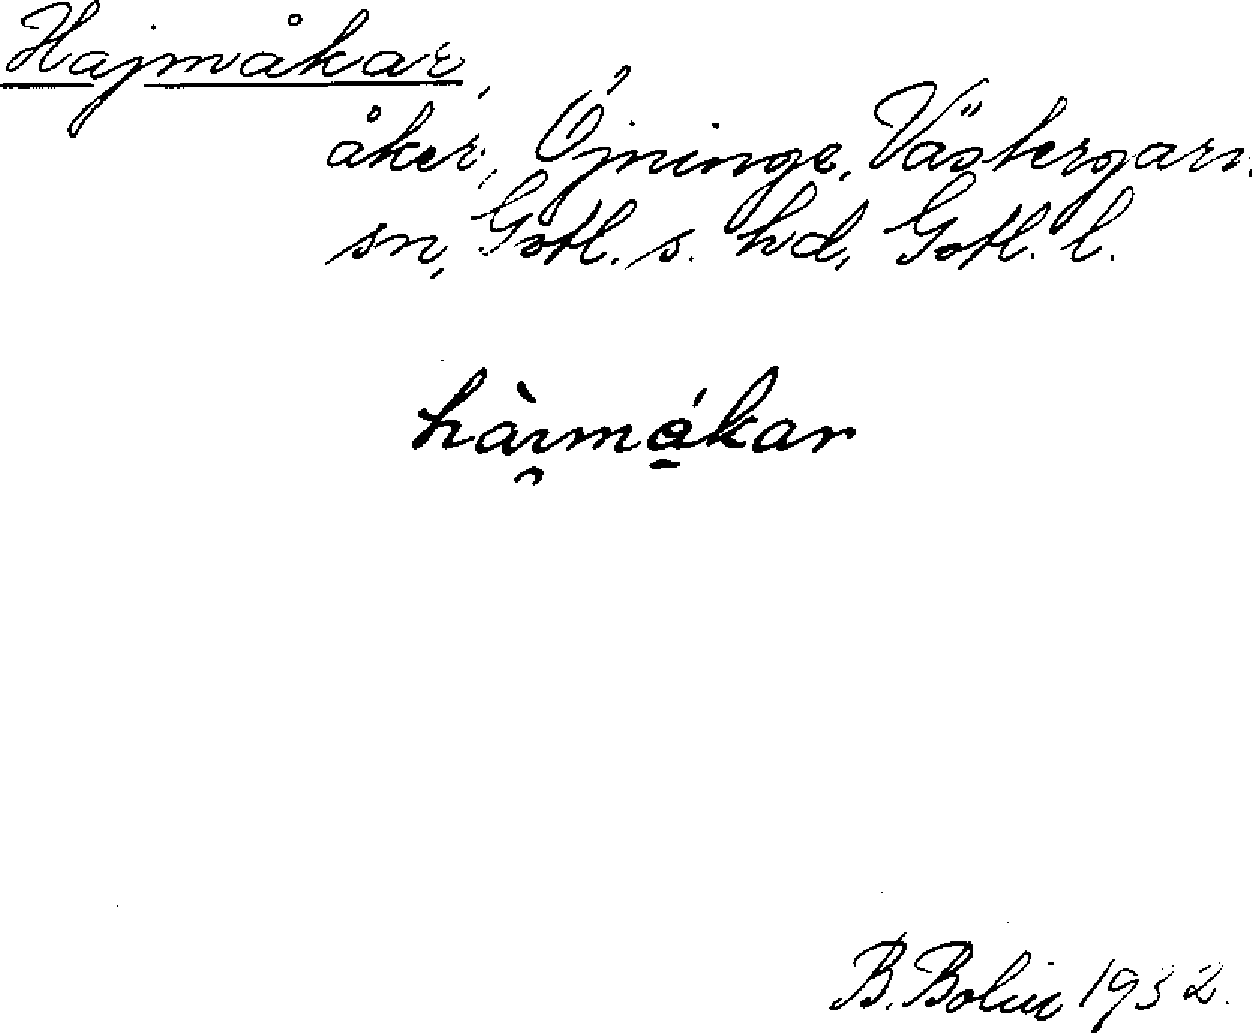 Hajmåkar,
åker, Öjninge, Västergarn
sn, Gotl. s. hd, Gotl. l.
hàı̯má̱kar
B. Bolin 1932.